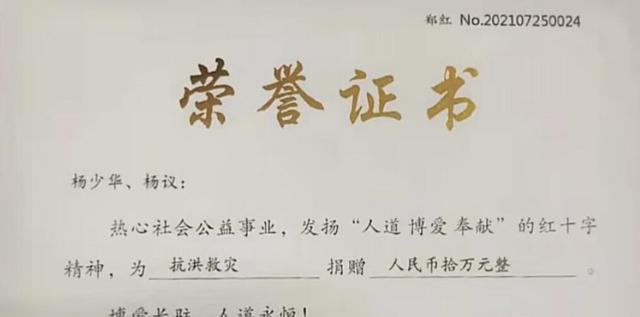 郑红 No.202107250024
荣誉证书
杨少华、杨议：
热心社会公益事业，发扬“人道博爱奉献”的红十字
精神，为 抗洪救灾 捐赠 人民币拾万元整 。
博爱长驻，人道永恒！